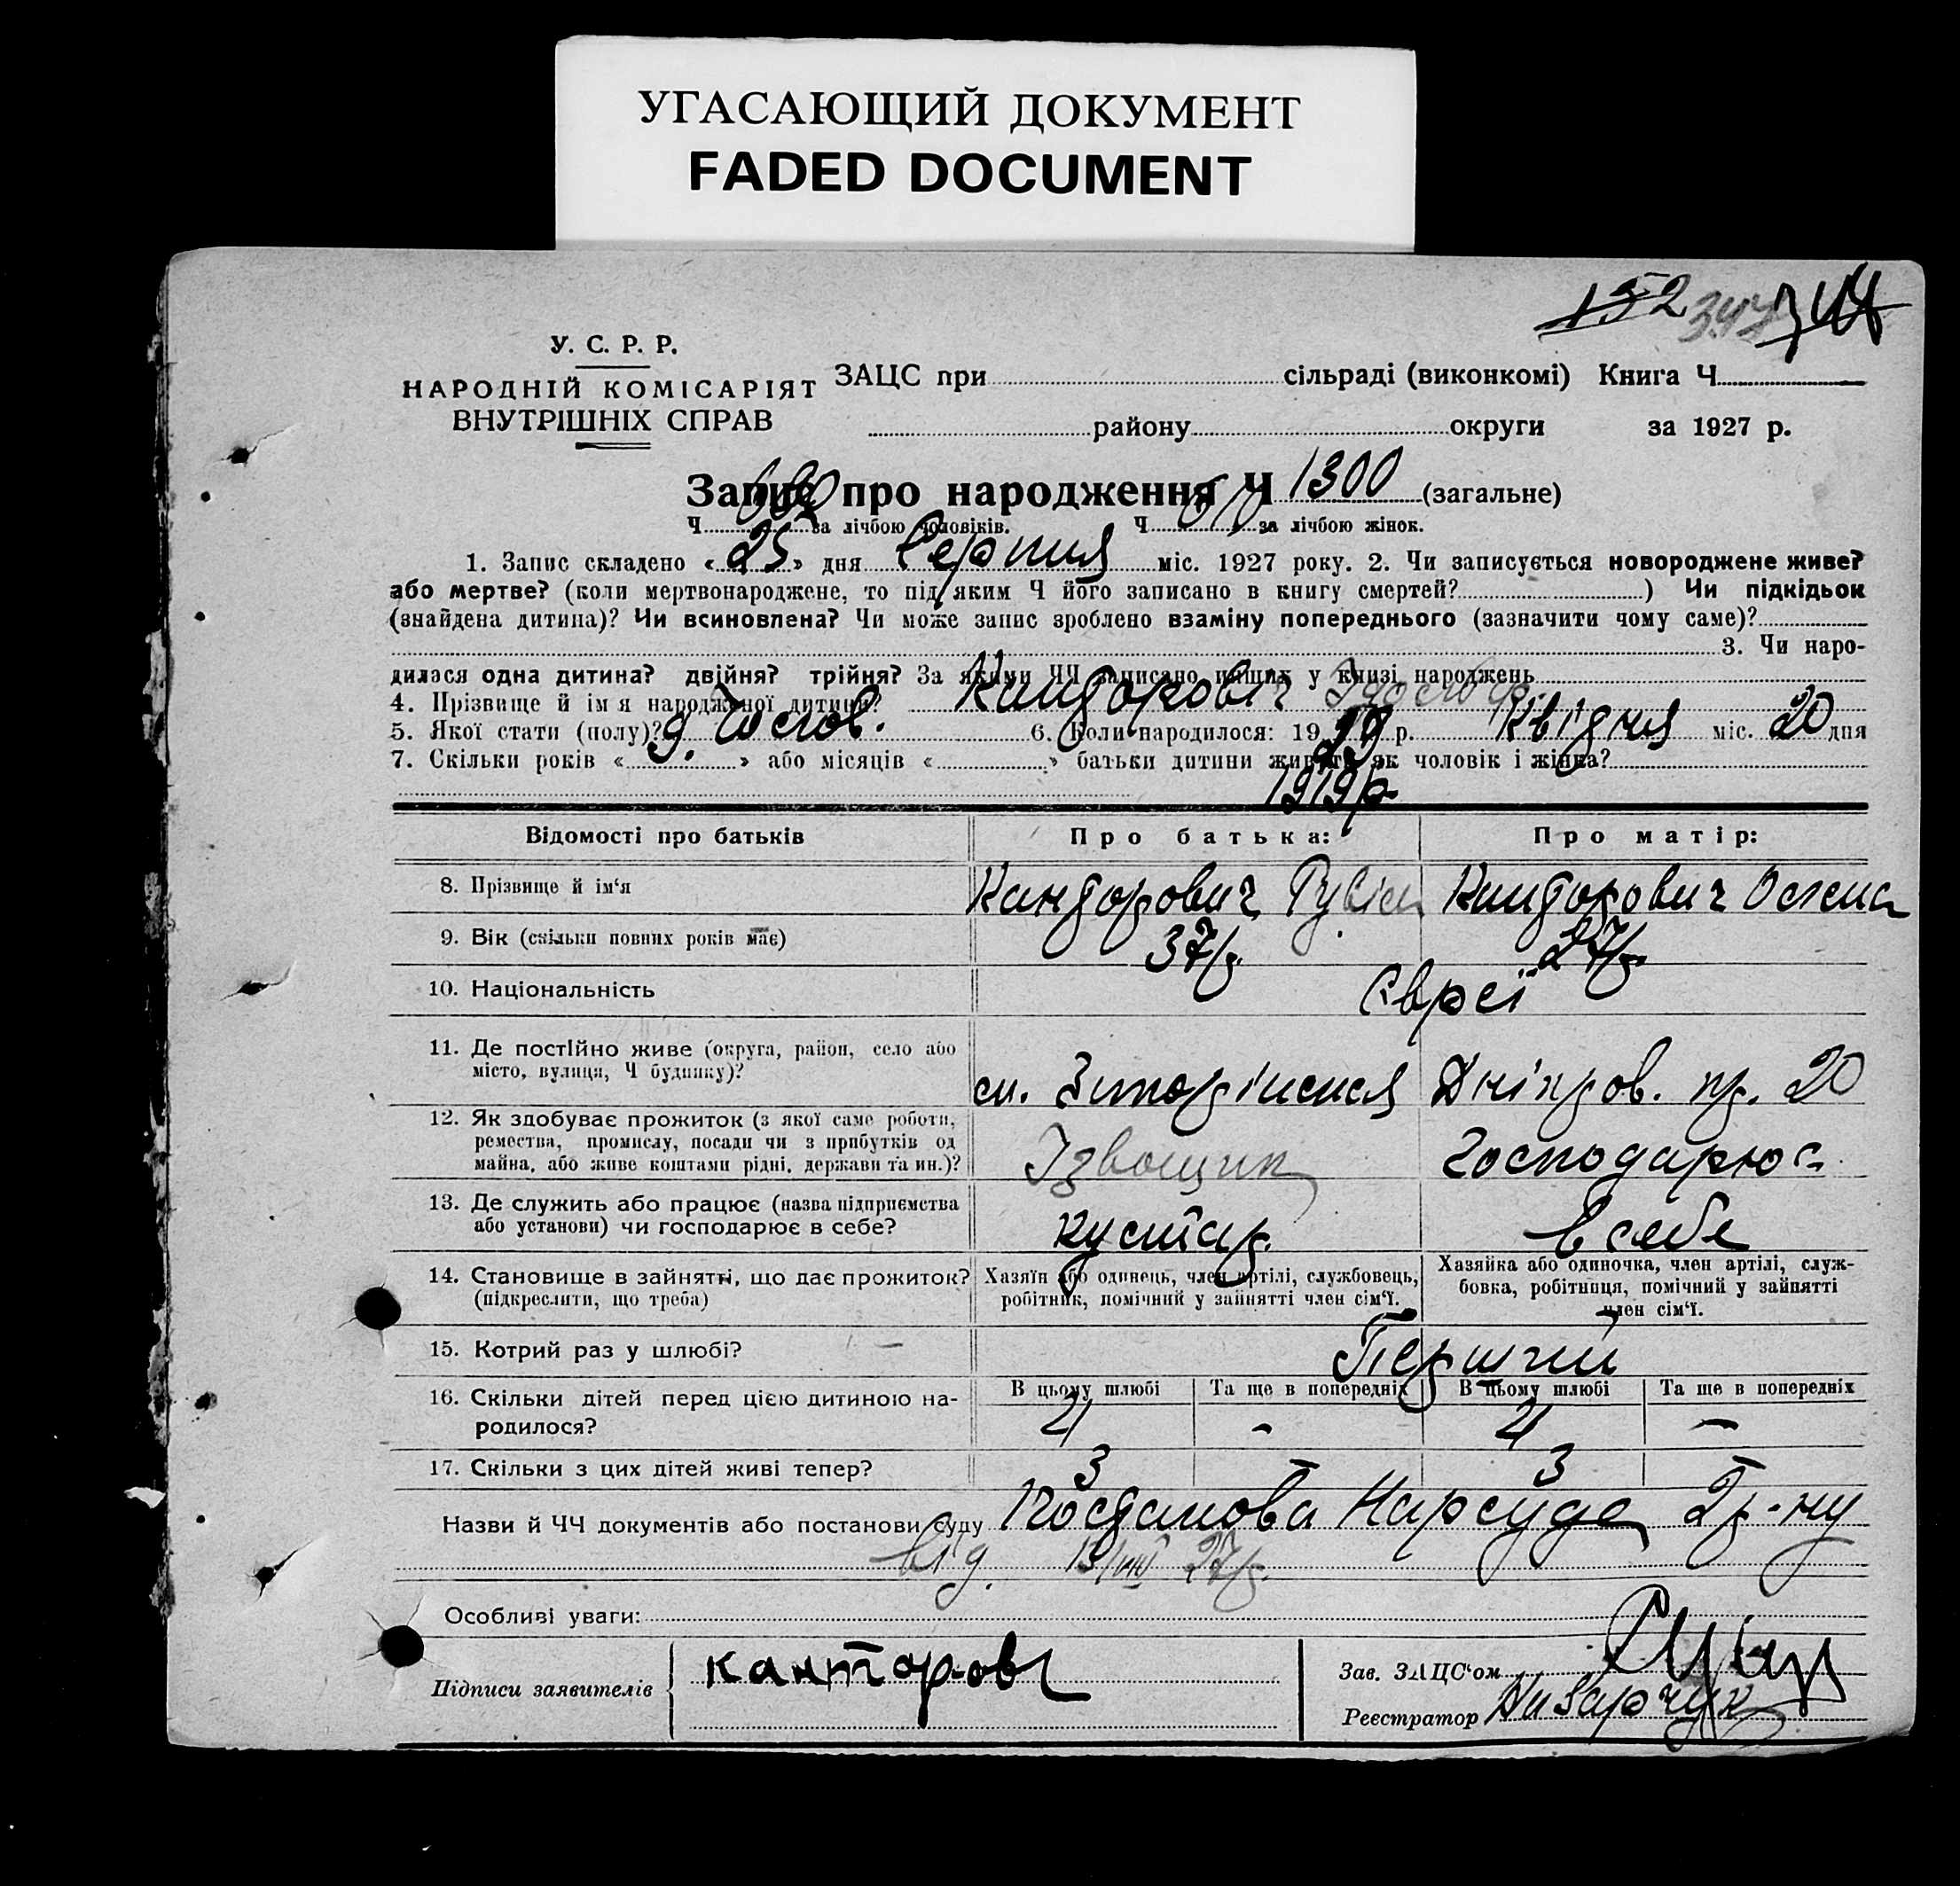 УГАСАЮЩИЙ ДОКУМЕНТ
FADED DOCUMENT
152 347
У. С. Р. Р.
НАРОДНІЙ КОМІСАРІЯТ
ВНУТРІШНІХ СПРАВ
ЗАЦС при сільраді (виконкомі) Книга Ч.
району округи за 1927 р.
Запис про народження Ч 1300 (загальне)
Ч за лічбою чоловіків. Ч за лічбою жінок.
1. Запис складено « 25 » дня Серпня міс. 1927 року. 2. Чи записується новороджене живе?
або мертве? (коли мертвонароджене, то під яким Ч його записано в книгу смертей? ) Чи підкідьок
(знайдена дитина)? Чи всиновлена? Чи може запис зроблено взаміну попереднього (зазначити чому саме)?
3. Чи наро-
дилася одна дитина? двійня? трійня? За якими ЧЧ записано инших у книзі народжень
4. Прізвище й ім'я народженої дитини? Кандорович
5. Якої стати (полу)? Чолов. 6. Коли народилося: 19 19 р. Квідня міс. 20 дня
7. Скільки років « » або місяців « » батьки дитини живуть як чоловік і жінка?
1919р.
Відомості про батьків Про батька: Про матір:
8. Прізвище й ім'я Кандорович Рувім Кандорович
9. Вік (скільки повних років має) 37р. 27р.
10. Національність Євреї
11. Де постійно живе (округа, район, село або
місто, вулиця, Ч будинку)? м. Запоріжжя Дніпров. пр. 20
12. Як здобуває прожиток (з якої саме роботи,
ремества, промислу, посади чи з прибутків од
майна, або живе коштами рідні, держави та ин.)? Ізвощик Господарює
13. Де служить або працює (назва підприємства
або установи) чи господарює в себе? кустар. в себе
14. Становище в зайнятті, що дає прожиток?
(підкреслити, що треба)
Хазяїн або одинець, член артілі, службовець,
робітник, помічний у зайнятті член сім'ї.
Хазяйка або одиночка, член артілі, служ-
бовка, робітниця, помічний у зайнятті
член сім'ї.
15. Котрий раз у шлюбі? Перший
16. Скільки дітей перед цією дитиною на-
родилося?
В цьому шлюбі Та ще в попередніх В цьому шлюбі Та ще в попередніх
- -
17. Скільки з цих дітей живі тепер? 3 - 3 -
Назви й ЧЧ документів або постанови суду Нарсуда 2 р-ну
від 27р.
Особливі уваги:
Підписи заявителів
Зав. ЗАЦС'ом
Реєстратор